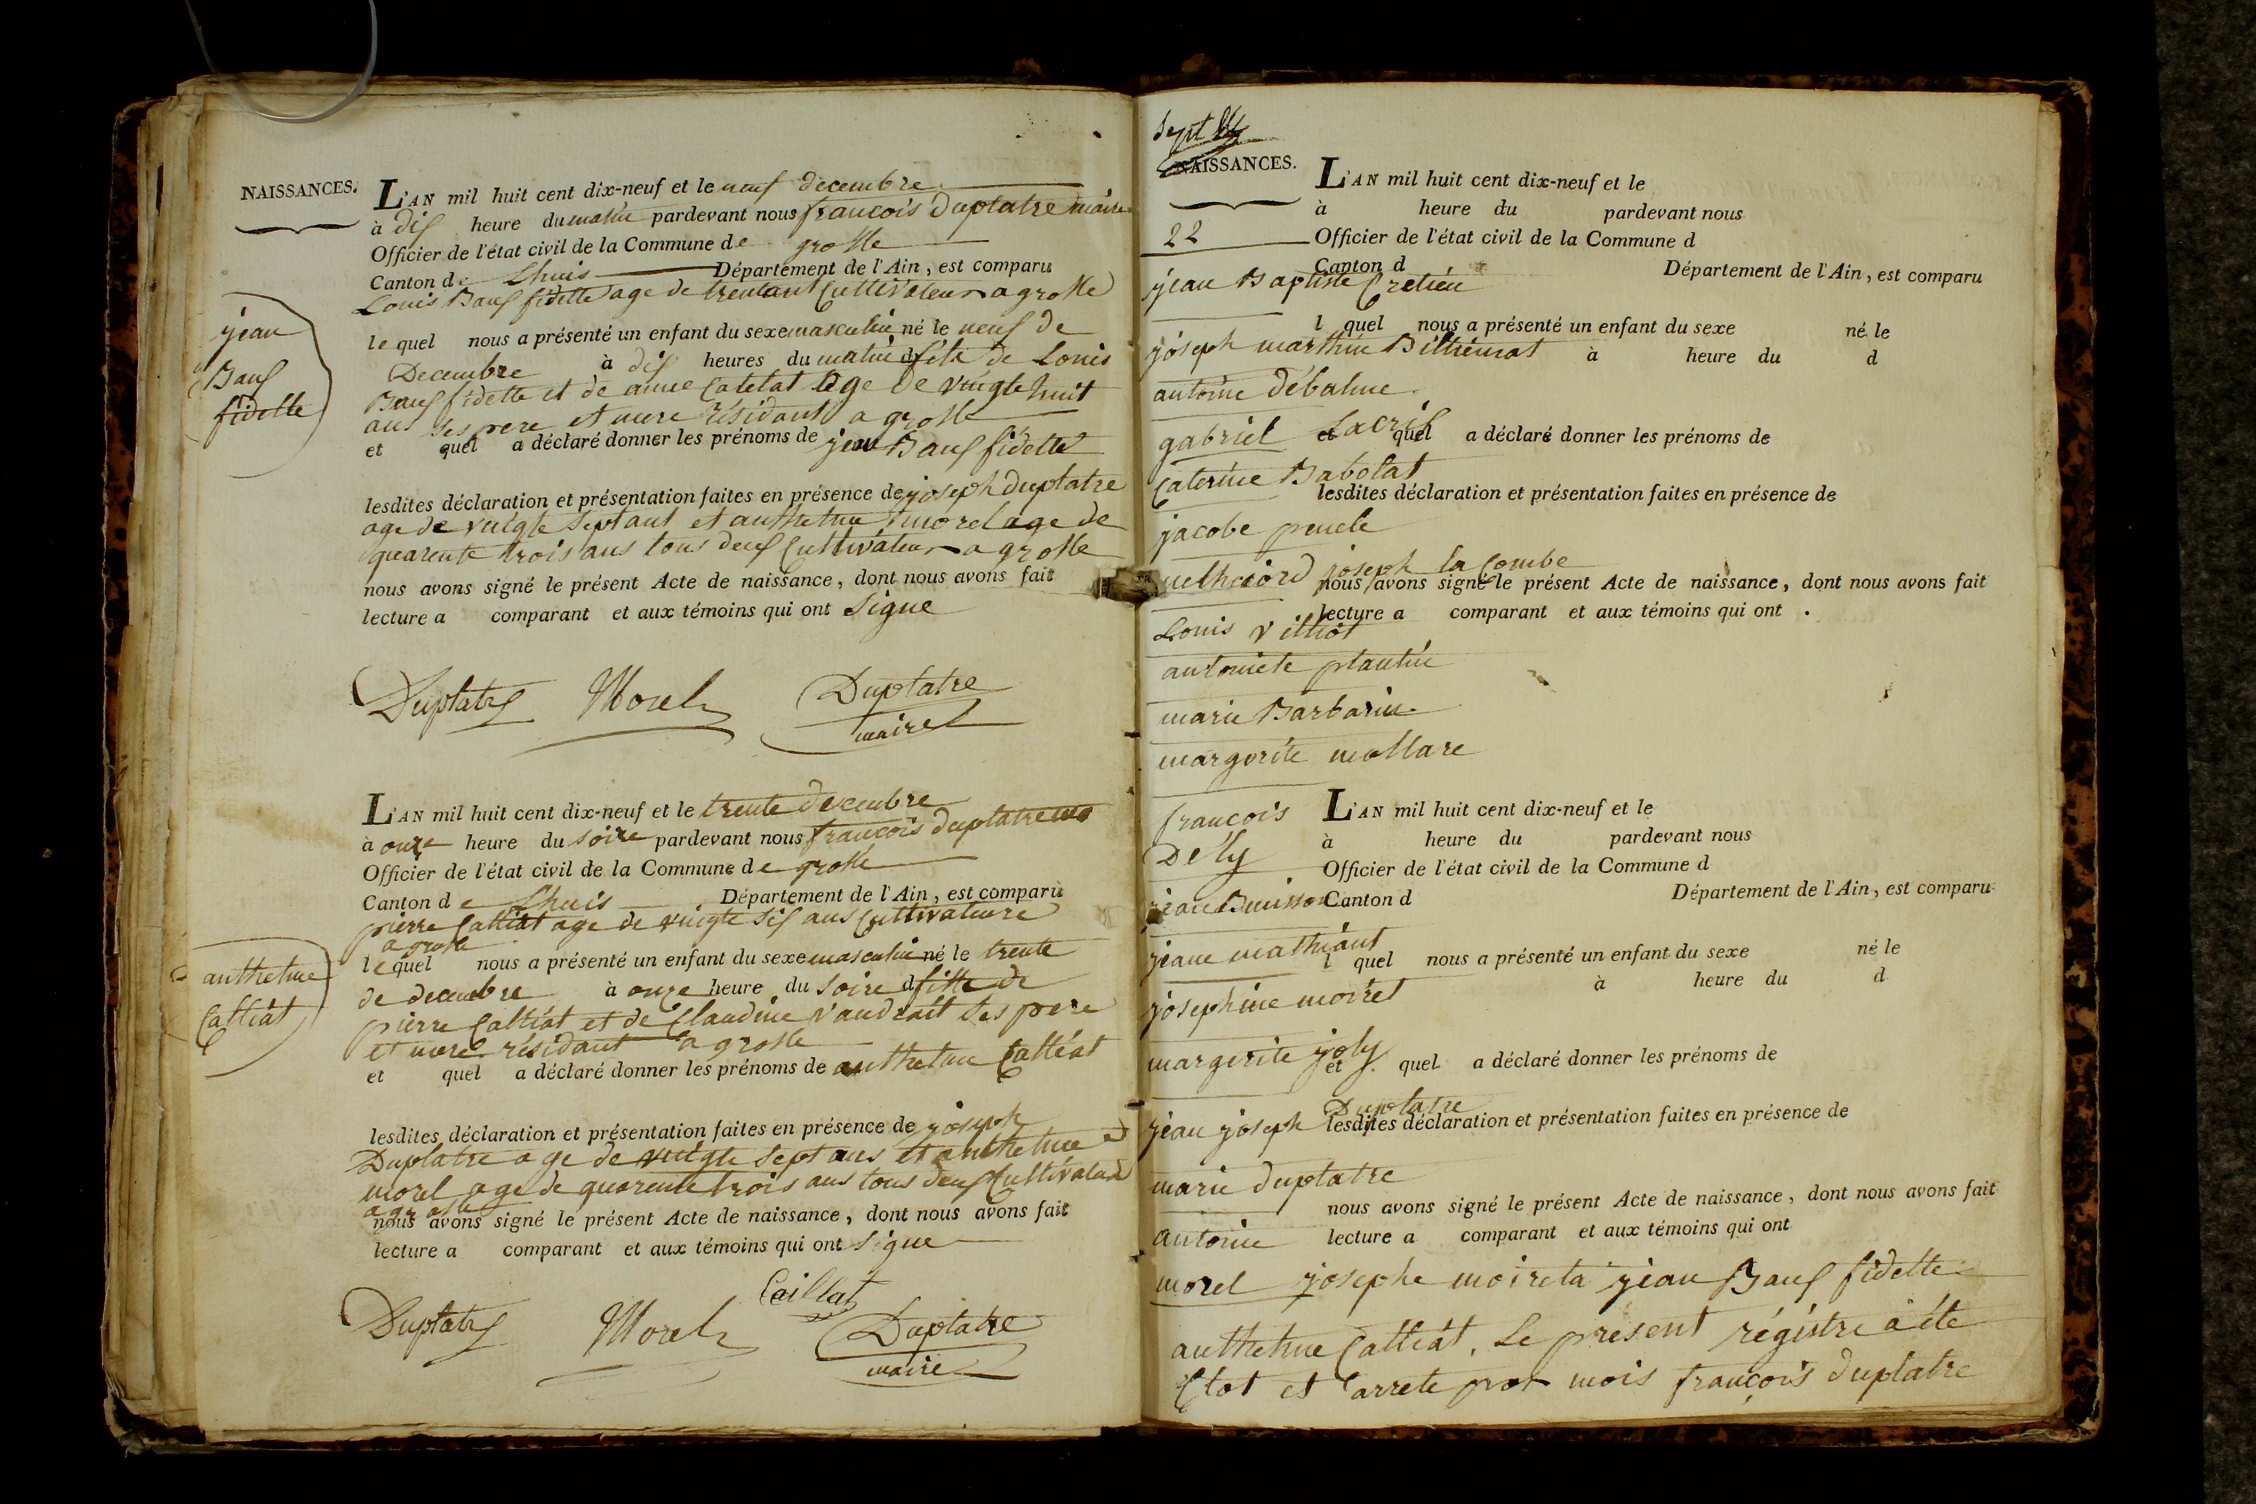 NAISSANCES.
L'AN mil huit cent dix-neuf et le neuf decembre
à dis heure du matin pardevant nous francois Duplatre maire
Officier de l'état civil de la Commune de groslle
Canton de Lhuis Département de l'Ain, est comparu
Louis Bauf fidelle age de trentant Cultivateur a groslle
le quel nous a présenté un enfant du sexe masculin né le neuf de
Decembre à dis heures du matin d fils de Louis
Bauf fidelle et de anne Catelat age de vingte huit
ans ses pere et mere résidant a groslle
et quel a déclaré donner les prénoms de jean Bauf fidelle
lesdites déclaration et présentation faites en présence de joseph duplatre
age de vingte sept ans et anthelme morel age de
quarente trois ans tous deuf Cultivateur a groslle
nous avons signé le présent Acte de naissance, dont nous avons fait
lecture a comparant et aux témoins qui ont signe
jean
Bauf
fidelle
Duplatre Morel Duplatre
maire
L'AN mil huit cent dix-neuf et le trente decembre
à onze heure du soire pardevant nous francois duplatre
Officier de l'état civil de la Commune de groslle
Canton de Lhuis Département de l'Ain, est comparu
pierre Calliat age de vingte sis ans Cultivateure
a groslle
le quel nous a présenté un enfant du sexe masculin né le trente
de decembre à onze heure du soire d fille de
pierre Calliat et de Claudine ses pere
et mere résidant a groslle
et quel a déclaré donner les prénoms de anthelme Calliat
lesdites déclaration et présentation faites en présence de joseph
Duplatre age de vingte sept ans et anthelme
morel age de quarente trois ans tous deuf Cultivateur
a groslle
nous avons signé le présent Acte de naissance, dont nous avons fait
lecture a comparant et aux témoins qui ont signe
anthelme
Calliat
Caillat
Duplatre Morel Duplatre
maire
Sept
NAISSANCES.
L'AN mil huit cent dix-neuf et le
à heure du pardevant nous
22
Officier de l'état civil de la Commune d
Canton d Département de l'Ain, est comparu
jean Baptiste Cretien
l quel nous a présenté un enfant du sexe né le
joseph marthin Billiemat
à heure du d
antoine débalme
gabriel Lacrif
et quel a déclaré donner les prénoms de
Caterine Babolat
lesdites déclaration et présentation faites en présence de
jacobe
joseph la Combe
nous avons signé le présent Acte de naissance, dont nous avons fait
lecture a comparant et aux témoins qui ont .
Louis villiot
antoniete plantin
marie Barbarin
margerite mollare
françois
Dély
L'AN mil huit cent dix-neuf et le
à heure du pardevant nous
Officier de l'état civil de la Commune d
jean Buisson
Canton d Département de l'Ain, est comparu
jeane mathiant
l quel nous a présenté un enfant du sexe né le
à heure du d
josephine moiret
margerite joly
et quel a déclaré donner les prénoms de
jean joseph Duplatre
lesdites déclaration et présentation faites en présence de
marie duplatre
nous avons signé le présent Acte de naissance, dont nous avons fait
lecture a comparant et aux témoins qui ont
antoine
morel josephe moireta jean Bauf fidelle
anthelme Calliat. Le present régistre a éte
Clot et arrete par mois françois duplatre